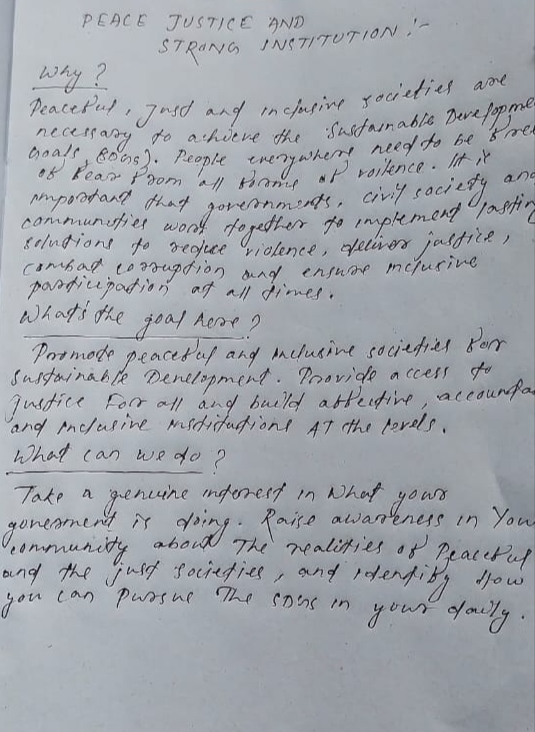 PEACE JUSTICE AND
STRONG INSTITUTION :-
Why?
Peaceful, just and inclusive societies are
necessary to achieve the Sustainable Developme
Goals, . People everywhere need to be free
of fear from all forms of voilence. It is
important that governments, civil society and
communities work together to implement lastin
solutions to reduce violence, deliver justice,
combat corruption and ensure inclusive
participation at all times.
What's the goal here?
Promote peaceful and inclusive societies for
Sustainable Development. Provide access to
justice For all and build affective, accounta
and inclusive institutions AT the levels.
What can we do?
Take a genuine interest in what your
government is doing. Raise awareness in You
community about The realities of Peaceful
and the just societies, and identify How
you can Pursue The SDGs in your daily.